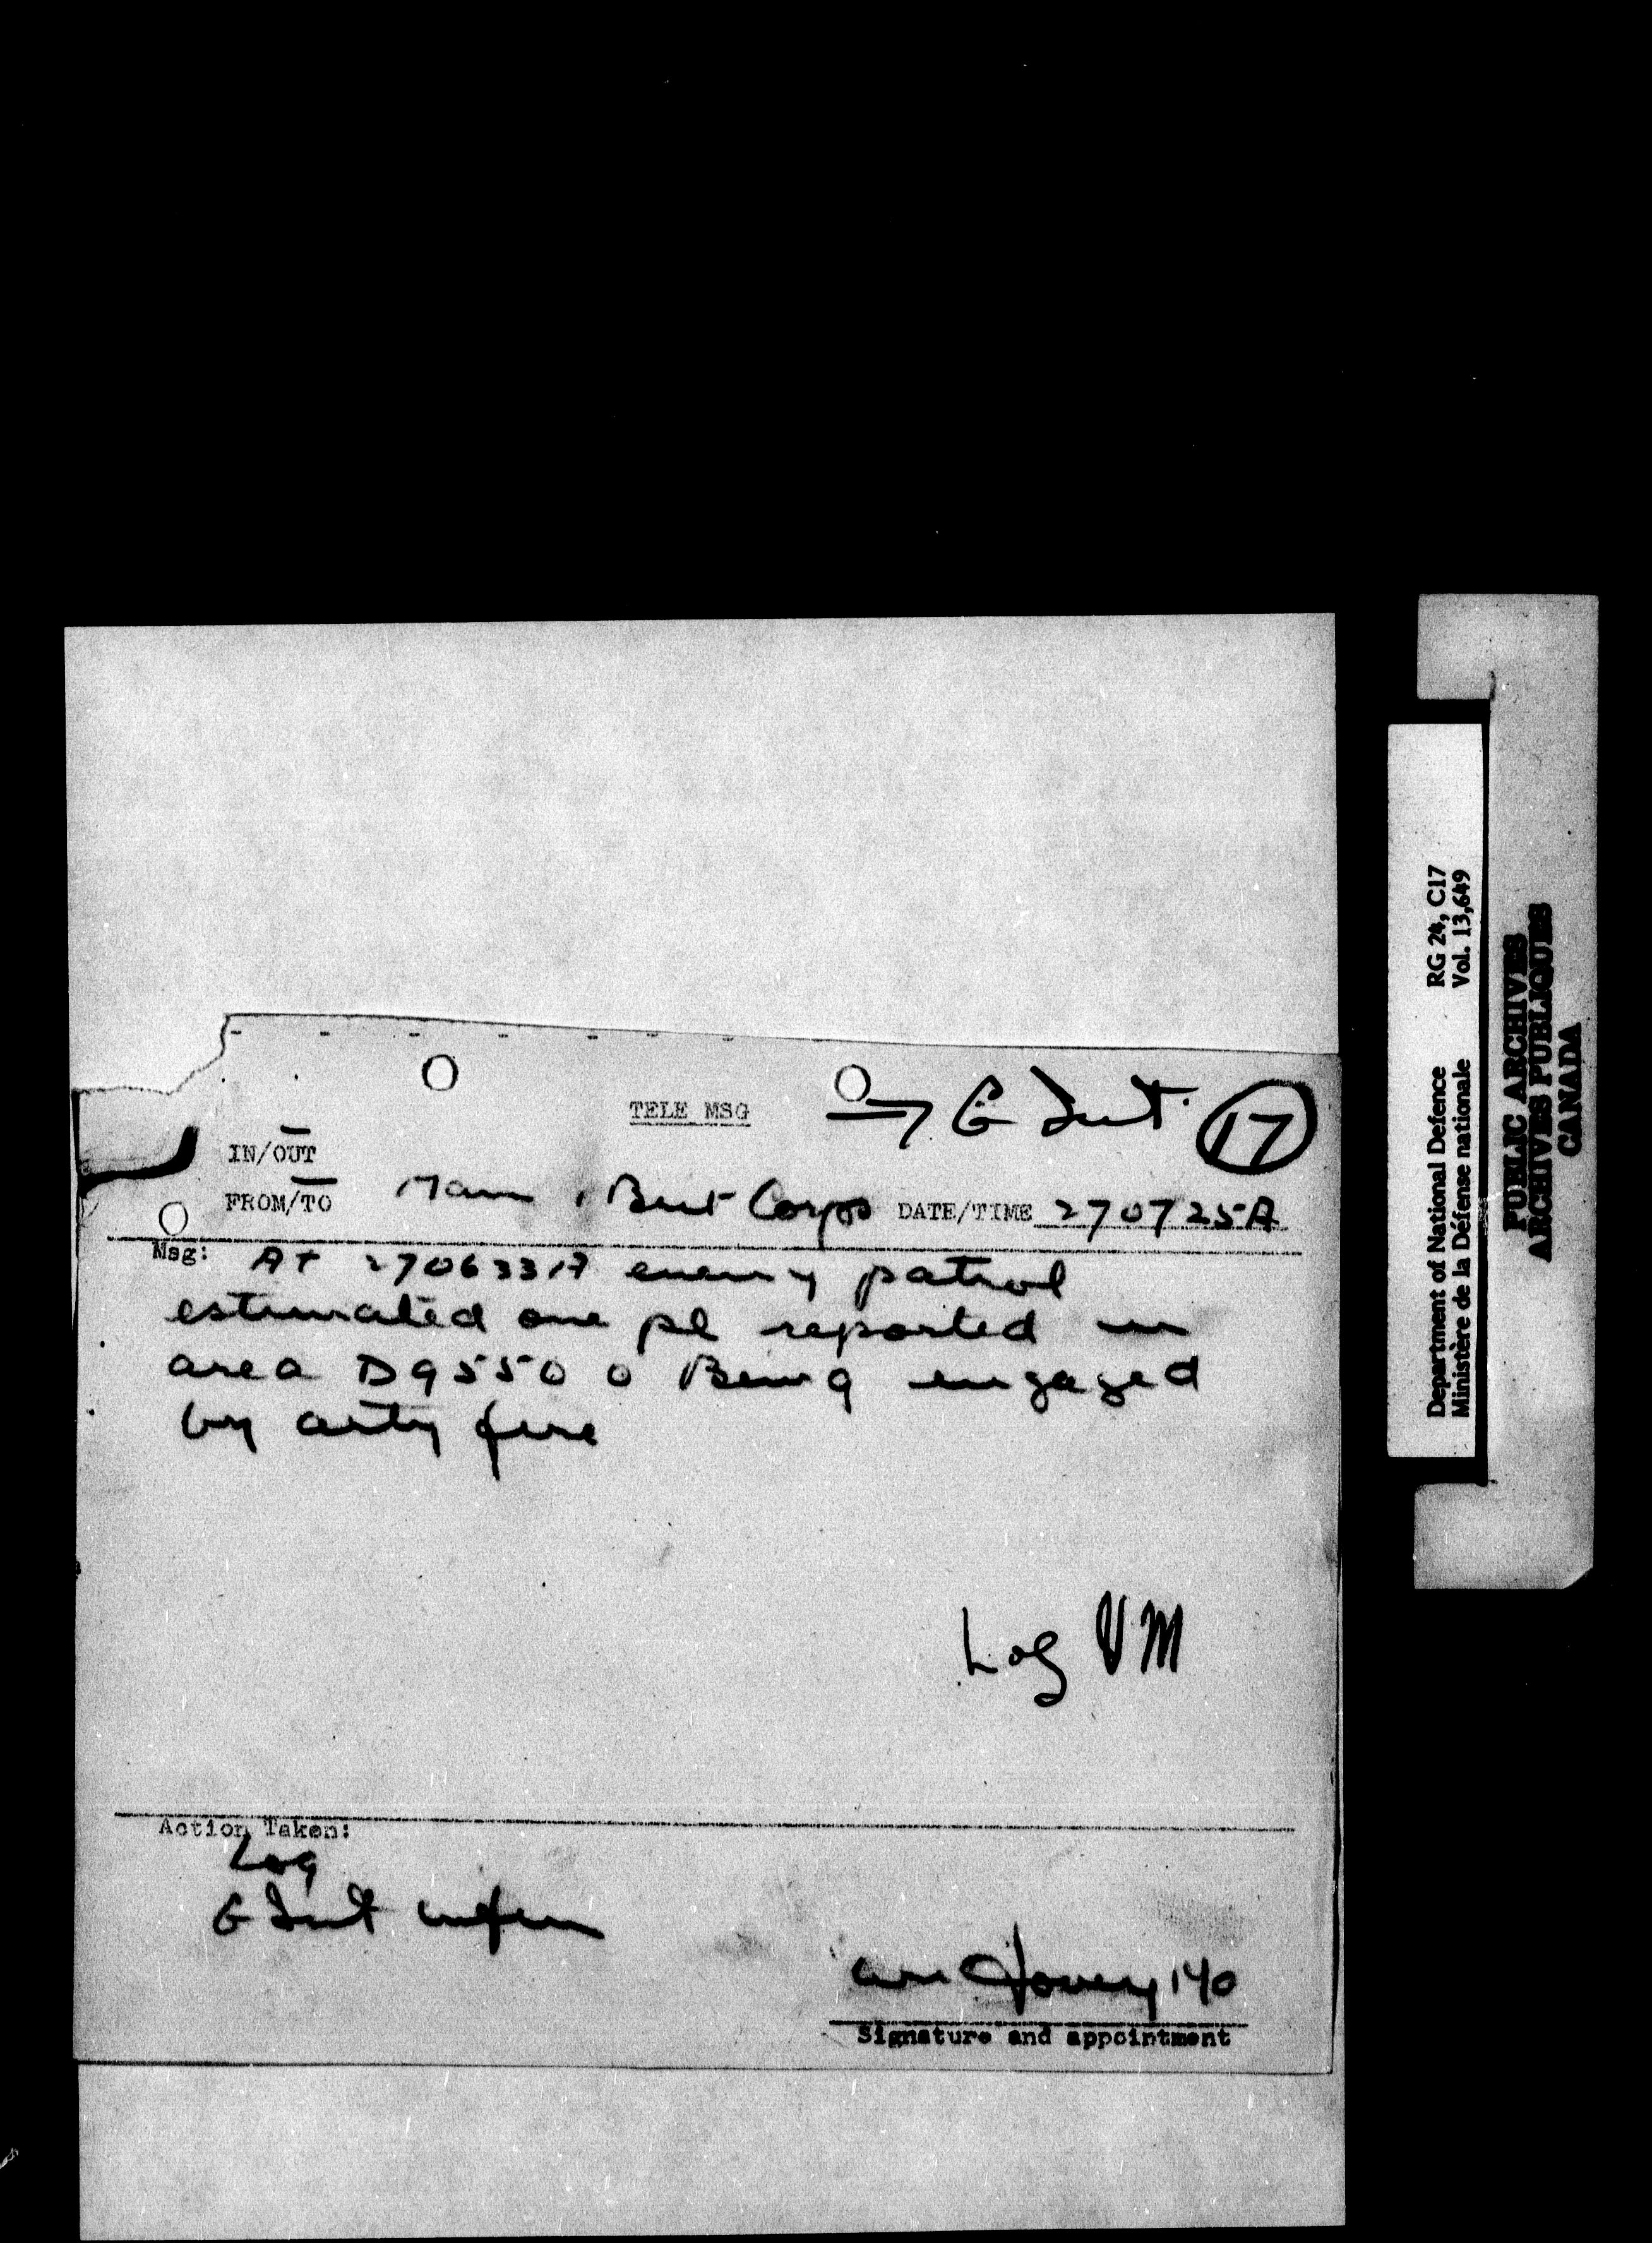 TELE MSG → G Int. 17
IN/OUT
FROM/TO Brit Corps DATE/TIME 270725A
Msg: At 270633A enemy patrol
estimated one pl reported in
area D9550 0 Being engaged
by arty fire
Log VM
Action Taken:
Log
G Int infm
Signature and appointment
Department of National Defence RG 24, C17
Ministère de la Défense nationale Vol. 13,649
PUBLIC ARCHIVES
ARCHIVES PUBLIQUES
CANADA